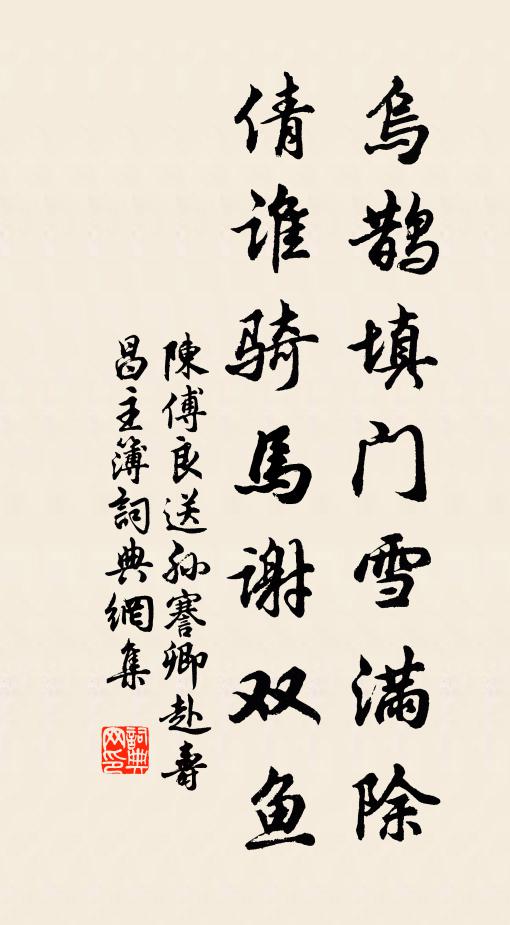 烏鹊填门雪满除
倩谁骑馬谢双鱼
陳傅良送孙謇卿赴壽
昌主簿詞典網集
詞典网印